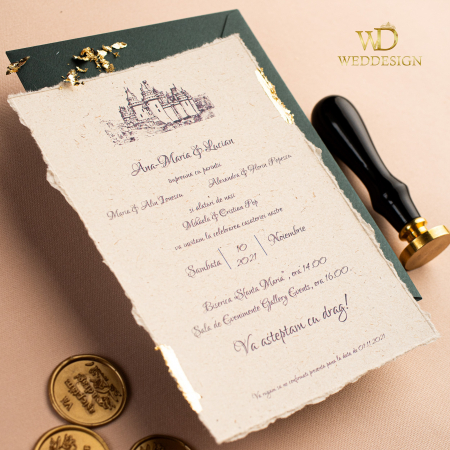 WD
WEDDESIGN
Ana-Maria & Lucian
impreuna cu parintii
Maria & Alin Ionescu
Alexandra & Florin Popescu
si alaturi de nasi
Mihaela & Cristian Pop
va invitam la celebrarea casatoriei noastre
Sambata | 10 | Noiembrie
2021
Biserica "Sfanta Maria", ora 14.00
Sala de Evenimente Gallery Events, ora 16.00
Va asteptam cu drag!
*Va rugam sa ne confirmati prezenta pana la data de 01.11.2021